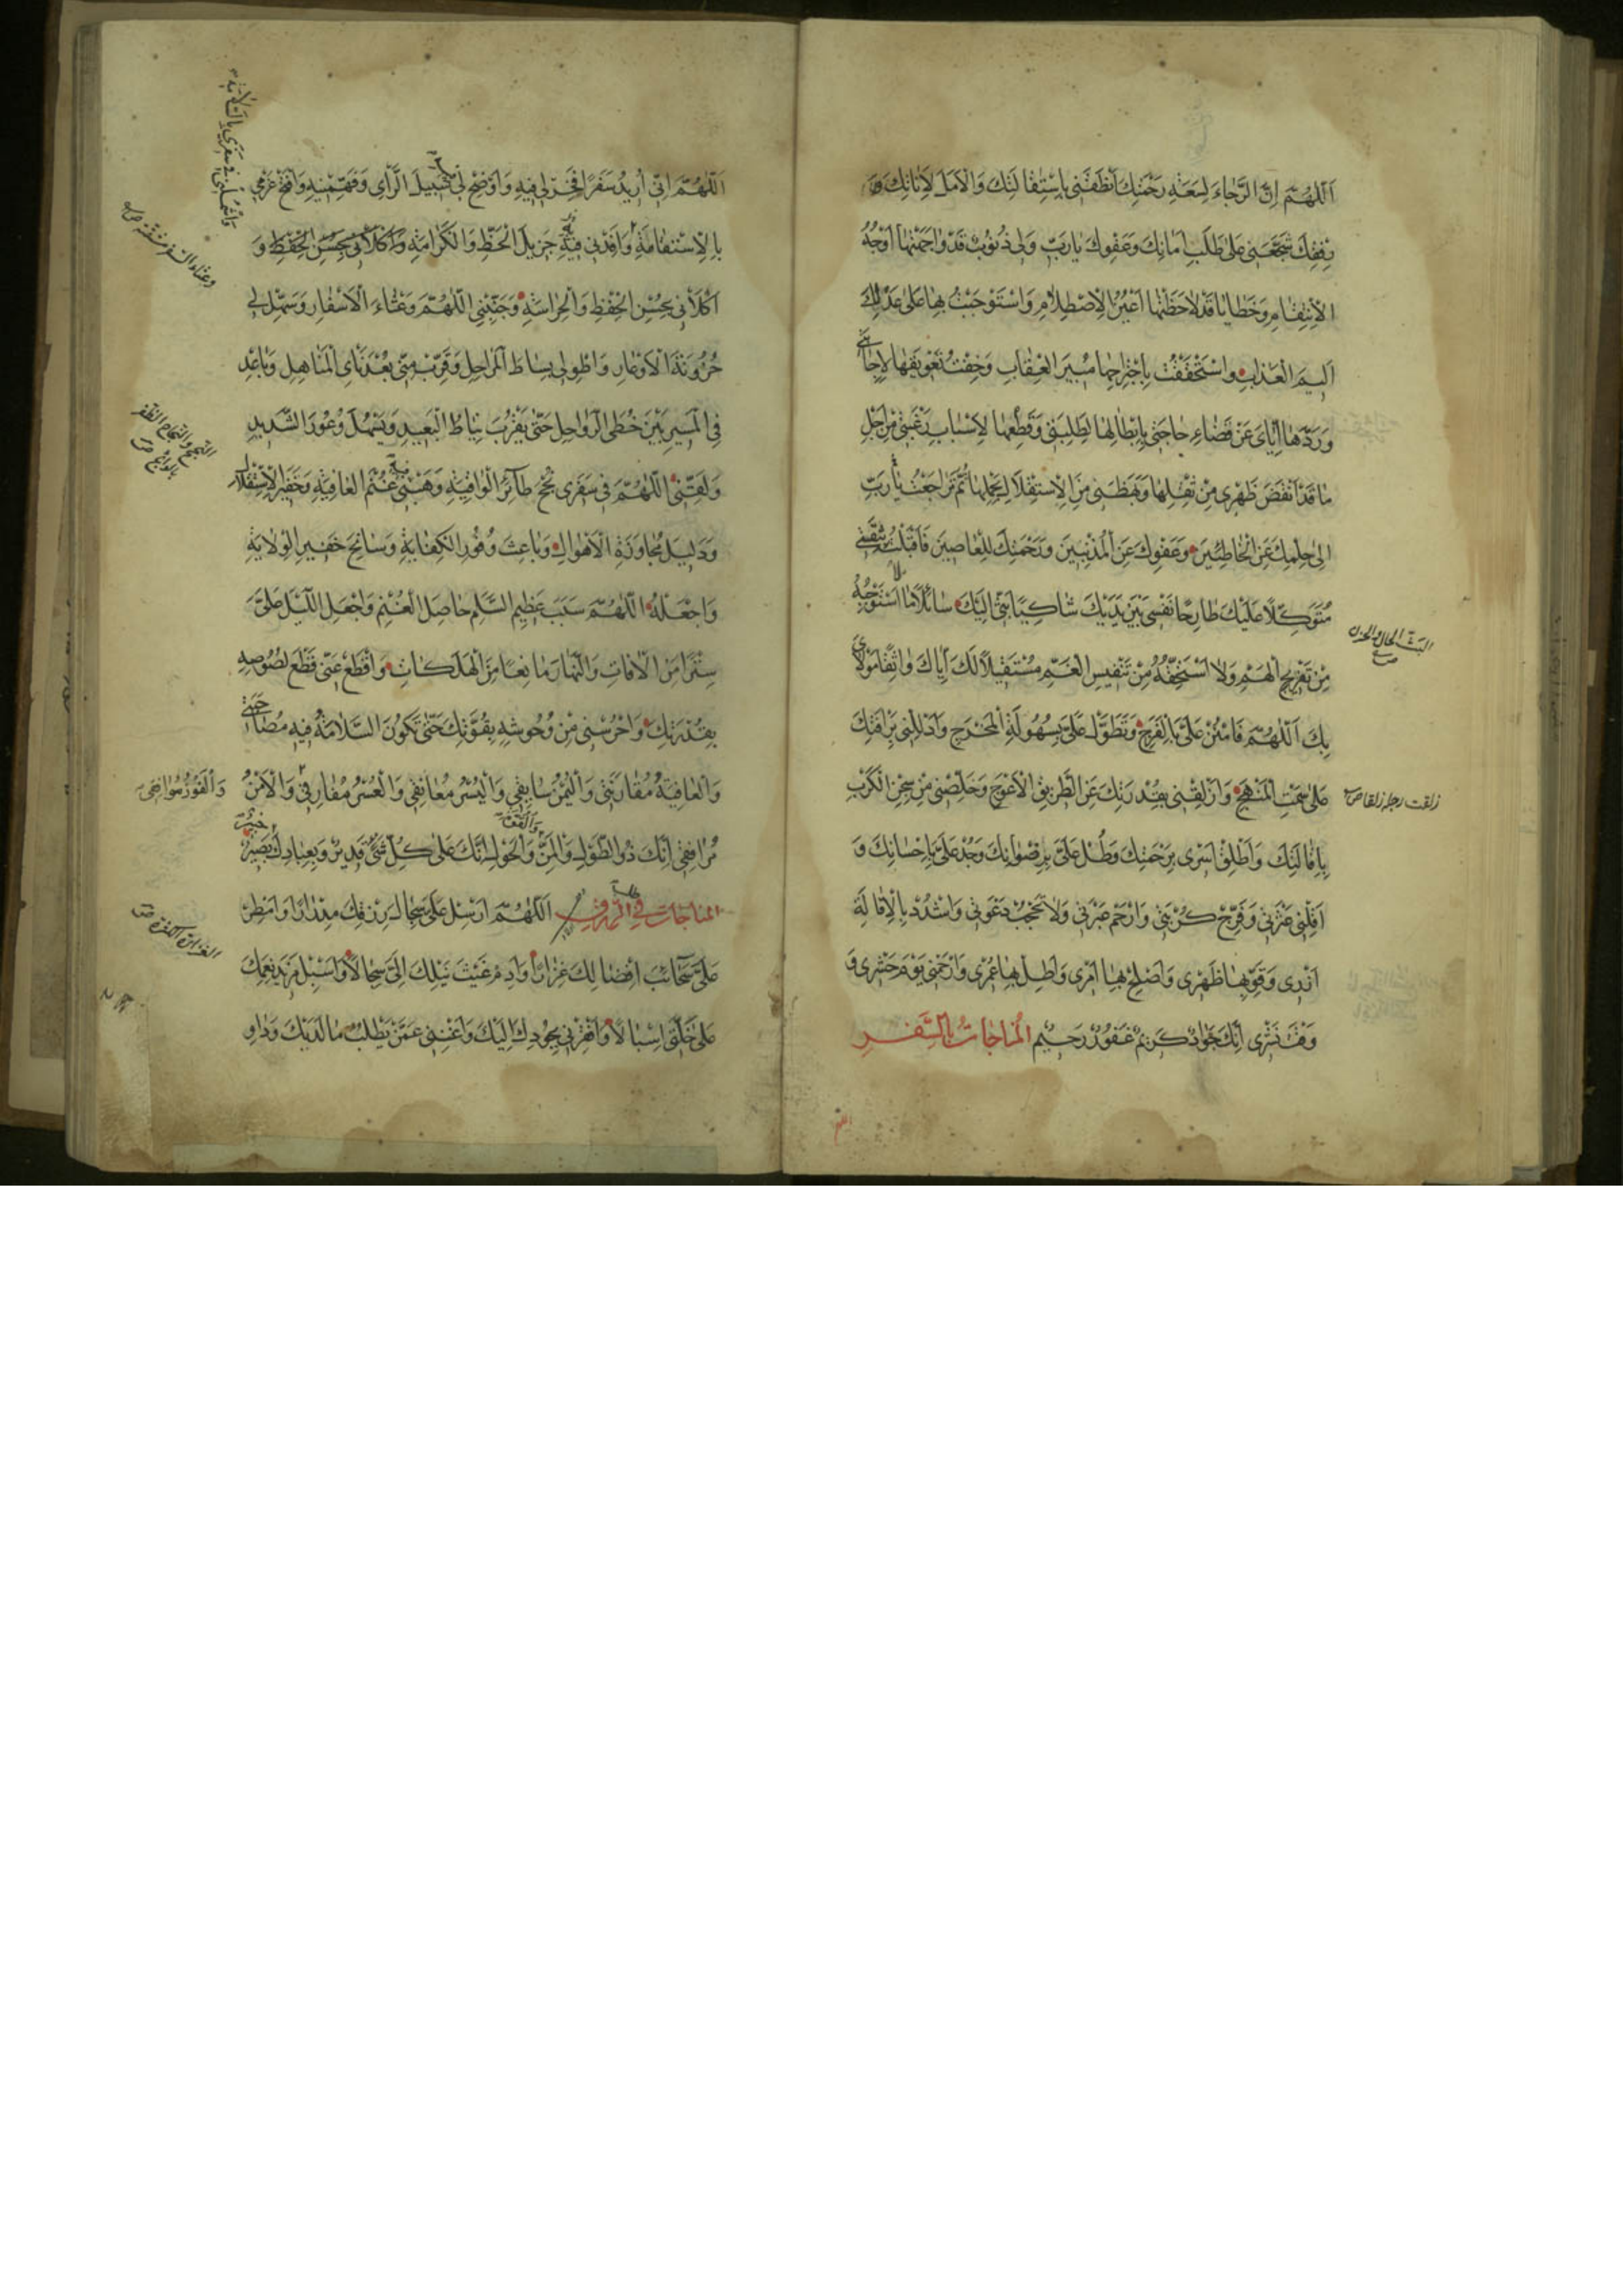 اَللّٰهُمَّ اِنَّ الرَّجٰاءَ لِسَعَةِ رَحْمَتِكَ اَنْطَقَنی بِاسْتِقٰالَتِكَ وَالْاَمَلَ لِاَنٰاتِكَ وَ
رِفْقِكَ شَجَّعَنی عَلیٰ طَلَبِ اَمٰانِكَ وَعَفْوِكَ یٰارَبِّ وَلی ذُنُوبٌ قَدْ وٰاجَهَتْهٰا اَوْجُهُ
الْاِنْتِقٰامِ وَخَطٰایٰا قَدْ لٰاحَظَتْهٰا اَعْیُنُ الْاِصْطِلٰامِ وَاسْتَوْجَبْتُ بِهٰا عَلیٰ عَدْلِكَ
اَلیمَ الْعَذٰابِ وَاسْتَحْقَقْتُ بِاجْتِرٰاحِهٰا مُبیرَ الْعِقٰابِ وَخِفْتُ تَعْویقَهٰا لِاِجٰابَتی
وَرَدَّهٰا اِیّٰایَ عَنْ قَضٰاءِ حٰاجَتی بِاِبْطٰالِهٰا لِطَلِبَتی وَقَطْعِهٰا لِاَسْبٰابِ رَغْبَتی مِنْ اَجْلِ
مٰا قَدْ اَنْقَضَ ظَهْری مِنْ ثِقْلِهٰا وَبَهَظَنی مِنَ الْاِسْتِقْلٰالِ بِحَمْلِهٰا ثُمَّ تَرٰاجَعْتُ یٰارَبِّ
اِلیٰ حِلْمِكَ عَنِ الْخٰاطِئینَ وَعَفْوِكَ عَنِ الْمُذْنِبینَ وَرَحْمَتِكَ لِلْعٰاصینَ فَاَقْبَلْتُ بِثِقَتی
مُتَوَكِّلاً عَلَیْكَ طٰارِحًا نَفْسی بَیْنَ یَدَیْكَ شٰاكِیًا بَثّی اِلَیْكَ سٰائِلاً مٰا لا اَسْتَوْجِبُهُ
مِنْ تَفْریجِ الْهَمِّ وَلا اَسْتَحِقُّهُ مِنْ تَنْفیسِ الْغَمِّ مُسْتَقیلاً لَكَ اِیّٰاكَ وٰاثِقًا مَوْلٰایَ
بِكَ اَللّٰهُمَّ فَامْنُنْ عَلَیَّ بِالْفَرَجِ وَتَطَوَّلْ عَلَیَّ بِسُهُولَةِ الْمَخْرَجِ وَادْلُلْنی بِرَأْفَتِكَ
عَلیٰ سَمْتِ الْمَنْهَجِ وَاَزْلِقْنی بِقُدْرَتِكَ عَنِ الطَّریقِ الْاَعْوَجِ وَخَلِّصْنی مِنْ سِجْنِ الْكَرْبِ
بِاِقٰالَتِكَ وَاَطْلِقْ اَسْری بِرَحْمَتِكَ وَطُلْ عَلَیَّ بِرِضْوٰانِكَ وَجُدْ عَلَیَّ بِاِحْسٰانِكَ وَ
اَقِلْنی عَثْرَتی وَفَرِّجْ كُرْبَتی وَارْحَمْ عَبْرَتی وَلا تَحْجُبْ دَعْوَتی وَاشْدُدْ بِالْاِقٰالَةِ
اَزْری وَقَوِّ بِهٰا ظَهْری وَاَصْلِحْ بِهٰا اَمْری وَاَطِلْ بِهٰا عُمْری وَارْحَمْنی یَوْمَ حَشْری وَ
وَقْتَ نَشْری اِنَّكَ جَوٰادٌ كَریمٌ غَفُورٌ رَحیمٌ الْمُنٰاجٰاتُ بِالسَّفَرِ
البث الحال والحزن
صح
زلقت رجله زلقا ص
اَللّٰهُمَّ اِنّی اُریدُ سَفَرًا فَخِرْ لی فیهِ وَاَوْضِحْ لی سَبیلَ الرَّأْیِ وَفَهِّمْنیهِ وَافْتَحْ عَزْمی
بِالْاِسْتِقٰامَةِ وَاَفِدْنی فیهِ جَزیلَ الْحَظِّ وَالْكَرٰامَةِ وَاكْلَأْنی بِحُسْنِ الْحِفْظِ وَ
اكْلَأْنی بِحُسْنِ الْحِفْظِ وَالْحِرٰاسَةِ وَجَنِّبْنِی اللّٰهُمَّ وَعْثٰاءَ الْاَسْفٰارِ وَسَهِّلْ لی
حُزُونَةَ الْاَوْعٰارِ وَاطْوِ لی بِسٰاطَ الْمَرٰاحِلِ وَقَرِّبْ مِنّی بُعْدَ نَأْیِ الْمَنٰاهِلِ وَبٰاعِدْ
فِی الْمَسیرِ بَیْنَ خُطَی الرَّوٰاحِلِ حَتّیٰ یَقْرُبَ نِیٰاطُ الْبَعیدِ وَیَسْهُلَ وُعُورُ الشَّدیدِ
وَلَقِّنِی اللّٰهُمَّ فی سَفَری نُجْحَ طٰآئِرِ الْوٰاقِیَةِ وَهَبْنی فیهِ غُنْمَ الْعٰافِیَةِ وَخَفیرَ الْاِسْتِقْلٰالِ
وَدَلیلَ مُجٰاوَزَةِ الْاَهْوٰالِ وَبٰاعِثَ وُفُورِ الْكِفٰایَةِ وَسٰانِحَ خَفیرِ الْوِلٰایَةِ
وَاجْعَلْهُ اللّٰهُمَّ سَبَبَ عَظیمِ السِّلْمِ حٰاصِلَ الْغُنْمِ وَاجْعَلِ اللَّیْلَ عَلَیَّ
سِتْرًا مِنَ الْاٰفٰاتِ وَالنَّهٰارَ مٰانِعًا مِنَ الْهَلَكٰاتِ وَاقْطَعْ عَنّی قِطَعَ لُصُوصِهِ
بِقُدْرَتِكَ وَاحْرُسْنی مِنْ وُحُوشِهِ بِقُوَّتِكَ حَتّیٰ تَكُونَ السَّلٰامَةُ فیهِ مُصٰاحِبَتی
وَالْعٰافِیَةُ مُقٰارِنَتی وَالْیُمْنُ سٰائِقی وَالْیُسْرُ مُعٰانِقی وَالْعُسْرُ مُفٰارِقی وَالْاَمْنُ
وَالْفَوْزُ مُوٰافِقی
مُرٰافِقی اِنَّكَ ذُو الطَّوْلِ وَالْمَنِّ وَالْحَوْلِ اِنَّكَ عَلیٰ كُلِّ شَیْءٍ قَدیرٌ وَبِعِبٰادِكَ بَصیرٌ
المناجات فی الرزق اَللّٰهُمَّ اَرْسِلْ عَلَیَّ سِجٰالَ رِزْقِكَ مِدْرٰارًا وَاَمْطِرْ
عَلَیَّ سَحٰائِبَ اِفْضٰالِكَ غِزٰارًا وَاَدِمْ غَیْثَ نَیْلِكَ اِلَیَّ سِجٰالاً وَاَسْبِلْ مَزیدَ نِعَمِكَ
عَلیٰ خَلَّتی اِسْبٰالاً وَافْقِرْنی بِجُودِكَ اِلَیْكَ وَاَغْنِنی عَمَّنْ یَطْلُبُ مٰا لَدَیْكَ وَدٰاوِ
وعثاء السفر مشقته ص
النجح والنجاح الظفر
بالحوائج ص
الغزارة الكثرة ص